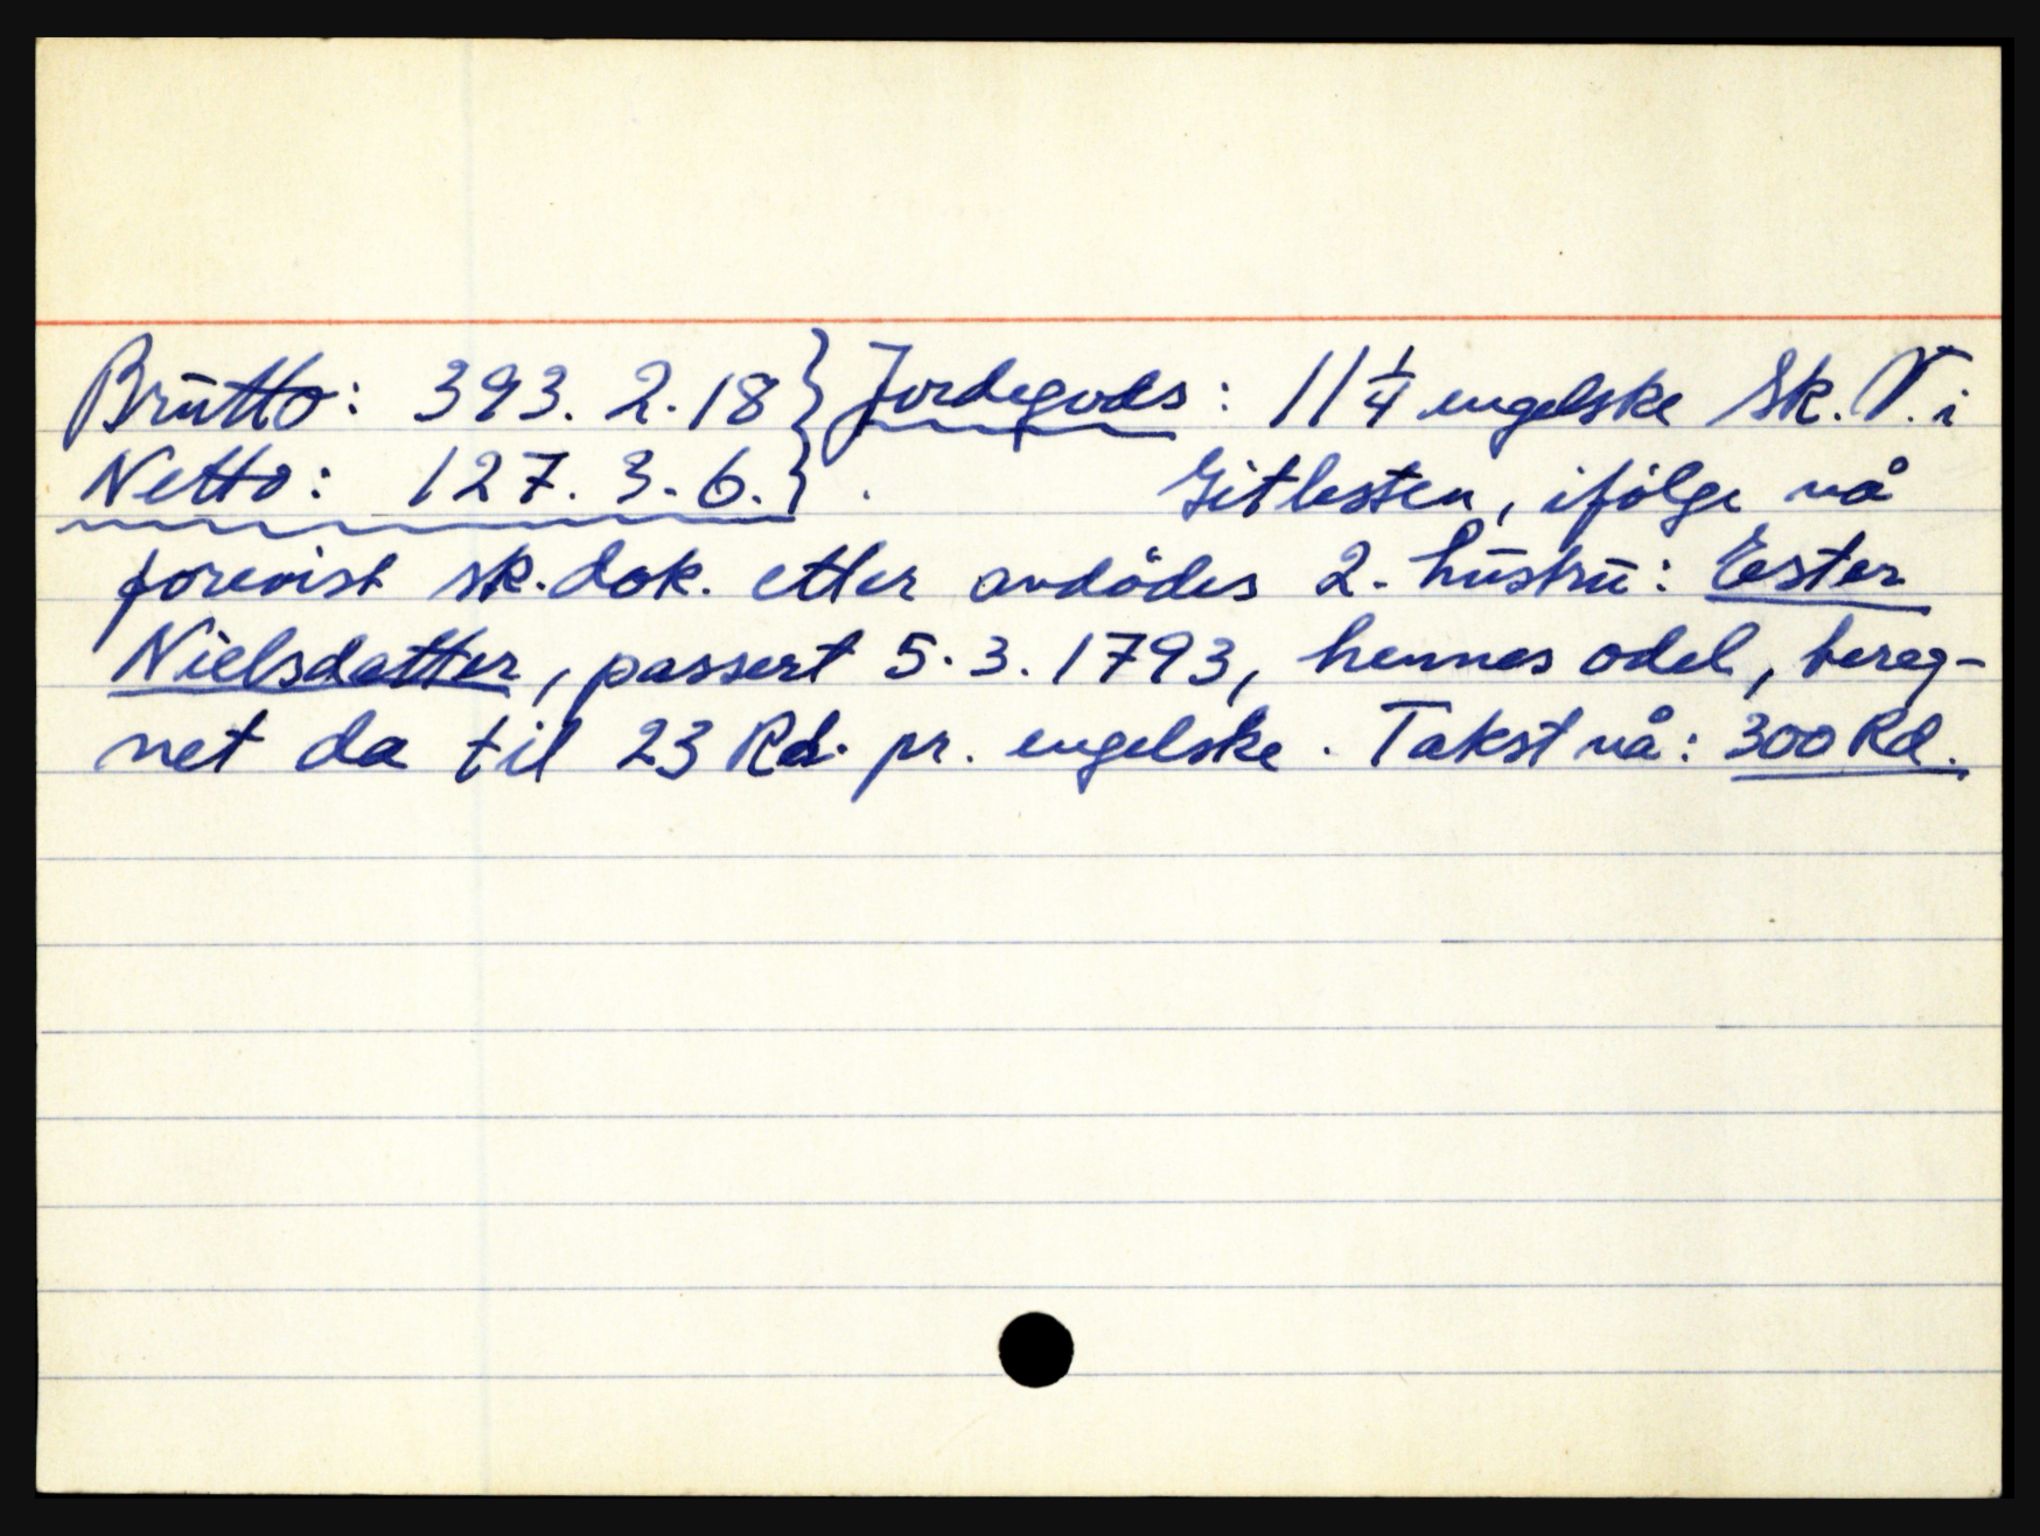 Brutto: 393. 2. 18 } Jordegods: 11 1/4 engelske Sk. V. i
Netto: 127. 3. 6. } . Gitlesten, ifölge nå
forevist sk. dok. etter avdödes 2. hustru: Ester
Nielsdatter, passert 5. 3. 1793, hennes odel, bereg-
net da til 23 Rd. pr. engelske. Takst nå: 300 Rd.